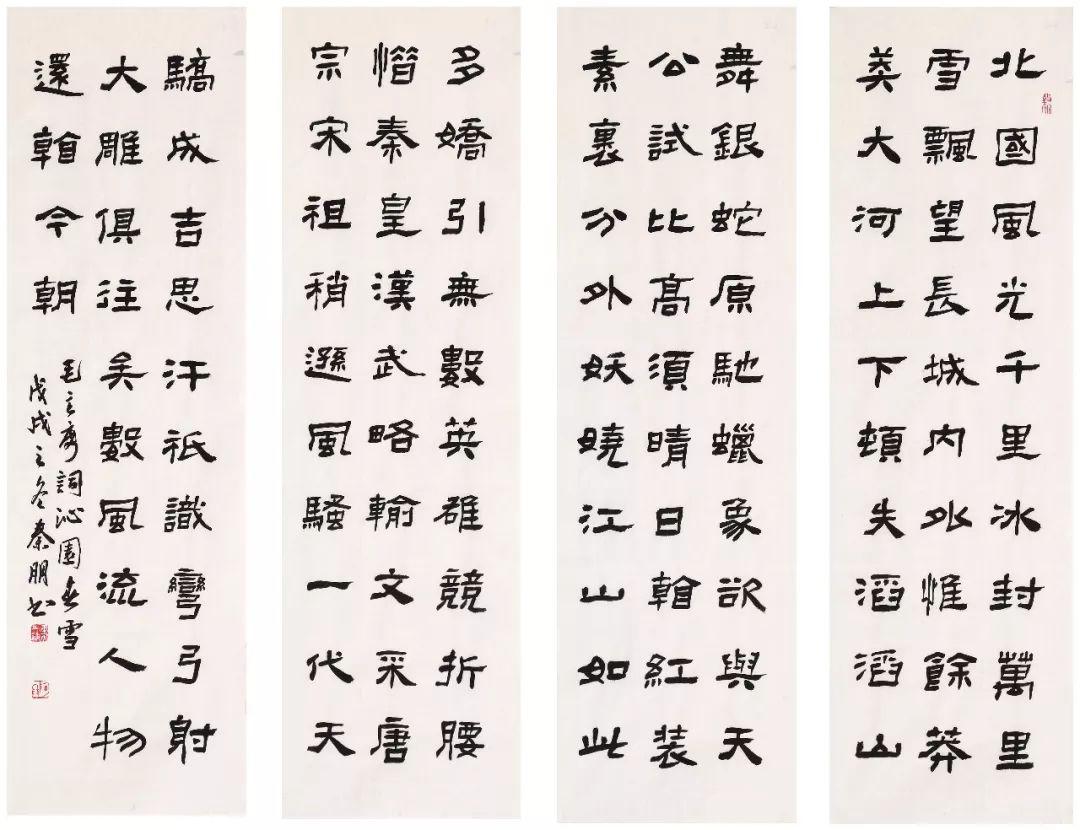 北國風光千里冰封萬里
雪飄望長城内外惟餘莽
莽大河上下頓失滔滔山
舞銀蛇原馳蠟象欲與天
公試比高須晴日看紅裝
素裏分外妖嬈江山如此
多嬌引無數英雄競折腰
惜秦皇漢武略輸文采唐
宗宋祖稍遜風騷一代天
驕成吉思汗祇識彎弓射
大雕俱往矣數風流人物
還看今朝
毛主席詞沁園春雪
戊戌之冬秦朋書